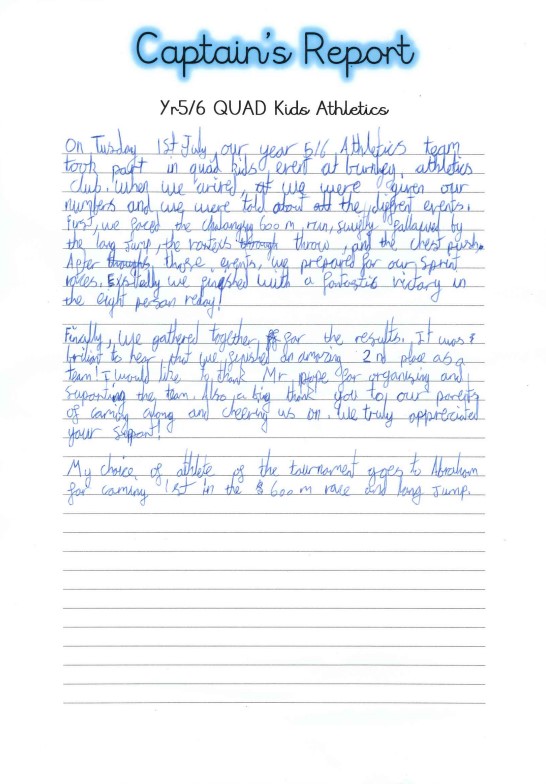 Captain's Report
Yr5/6 QUAD Kids Athletics
On Tusday 1st July, our year 5/6 Athletics team
took part in quad kids event at burnley athletics
club. When we arived, we were given our
numbers and we were told about the diffrent events.
First, we faced the chalangg 600 m run, swiftly followed by
the long Jump, the vortex throw, and the chest push.
After those events, we prepared for our Sprint
races. we finished with a fantastic victory in
the eight person relay!
Finally, we gathered together for the results. It was
briliant to hear that we finished an amazing 2nd place as a
team! I would like to thank Mr pope for organising and
suporting the team. Also, a big thank you to our parents
of coming along and cheering us on. We truly appreciated
your support!
My choice of athlete of the tournament goes to Abraham
for coming 1st in the 600 m race and long Jump.